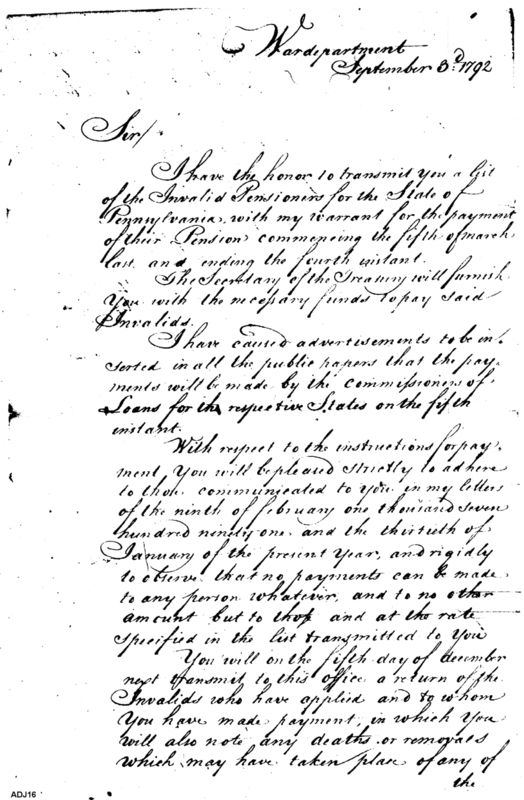 Wardepartment
September 3.d 1792
Sir/
I have the honor to transmit You a list
of the Invalid Pensioners for the State of
Pennsylvania, with my warrant for the payment
of their Pension commencing the fifth of march
last, and ending the fourth instant.
The Secretary of the Treasury will furnish
You with the necessary funds to pay said
Invalids.
I have caused advertisements to be in-
serted in all the public papers that the pay-
ments will be made by the commissioners of
Loans for the respective States on the fifth
instant.
With respect to the instructions for pay-
ment, You will be pleased strictly to adhere
to those communicated to you in my letters
of the ninth of february one thousand seven
hundred ninety one and the thirtieth of
January of the present Year, and rigidly
to observe that no payments can be made
to any person whatever, and to no other
amount but to those and at the rate
specified in the list transmitted to You
You will on the fifth day of december
next transmit to this office a return of the
Invalids who have applied and to whom
You have made payment, in which You
will also note any deaths or removals
which may have taken place of any of
the
ADJ16